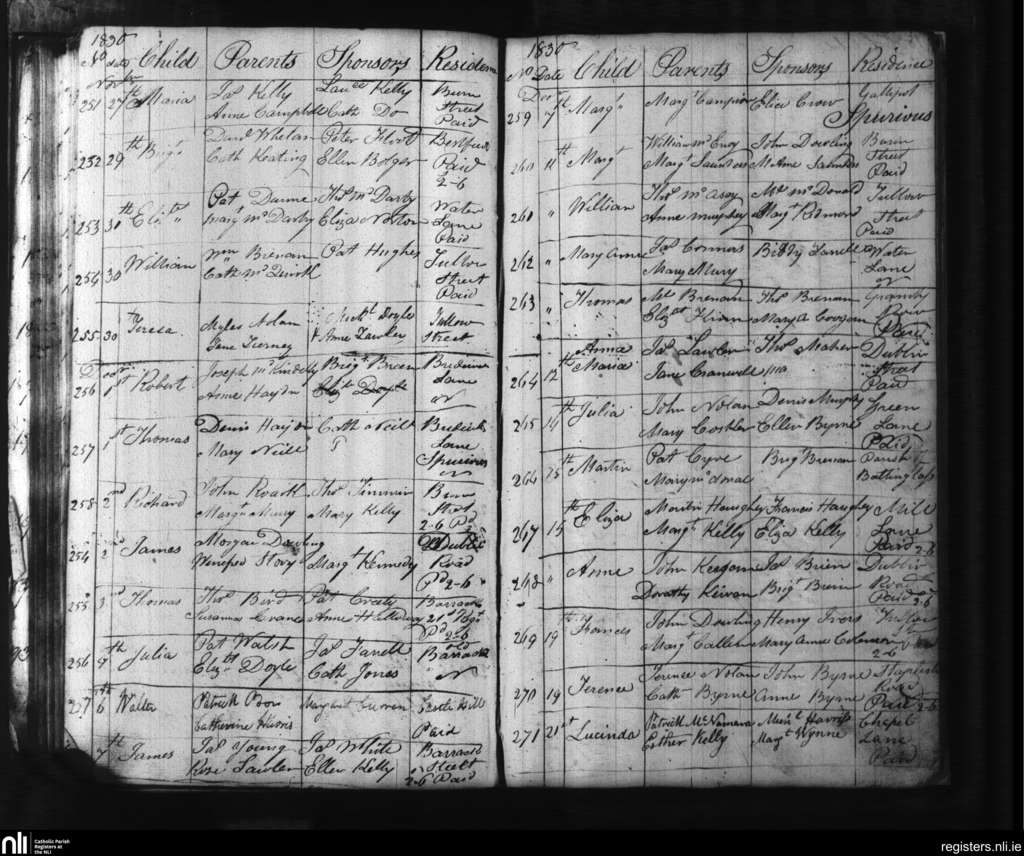 1830
No date Child Parents Sponsors Residence
Novbr
251 27th Maria Jas Kelly Laurce Kelly Burn
Anne Campbell Cath Do Street
Paid
252 29th Brigt Danl Whelan Peter
Cath Keating Ellen Bolger Paid
2-6
253 30th Elizth Pat Dunne Thos McDarby Water
Margt McDarby Eliza Nolton Lane
Paid
254 30 William Wm Brenan Pat Hughes Tullow
Cath Street
Paid
255 30 Teresa Myles Nolan Michl Doyle Tullow
Jane Tierney & Anne Lawler Street
Decbr
256 1st Robert Joseph Brigt Lane
Anne Haydn Elizth Doyle
257 1st Thomas Denis Haydn Cath Neill
Mary Neill Lane
Spurious
258 2nd Richard John Roark Thos Timmin Burn
Margt Mary Kelly Street
2-6 Pd
254 2nd James Morgan Dowling Dublin
Winefred Story Margt Kennedy Road
Pd 2-6
255 3rd Thomas Thos Bird Pat Barrack
Susanna Evans Anne 21st
Pd 2-6
256 5th Julia Pat Walsh Jas Farrell old
Elizth Doyle Cath Jones Barrack
257 6th Walter Patrick Margaret Curran Castle Hill
Catherine Harris Paid
7th James Jas Young Jas White Barrack
Rose Lawler Ellen Kelly Street
2-6 Paid
1830
No Date Child Parents Sponsors Residence
Decr
259 7th Margt Margt Campion Elice Crow Gallipot
Spurious
260 11th Margt William McEvoy John Dowling Burn
Margt Saunders M Anne Saunders Street
Paid
261 " William Thos McAsey Ml McDonald Tullow
Anne Murphy Margt Redmond Street
Paid
262 " Mary Anne Jas Connors Biddy Farrell Water
Mary Lane
263 " Thomas Ml Brenan Thos Brenan Granby
Elizth Kirwan Mary A Coogan Row
Paid
264 12th Anna Jas Lawler Thos Maher Dublin
Maria Jane Cranwell Street
Paid
265 14th Julia John Nolan Denis Murphy Green
Mary Costelo Ellen Byrne Lane
Paid
264 15th Martin Pat Brigt Brenan Parish
Mary
267 15th Eliza Martin Haughey Francis Haughey Mill
Margt Kelly Eliza Kelly Lane
Paid 2-6
268 " Anne John Keegan Jas Brien Dublin
Dorothy Kirwan Brigt Road
Paid 2-6
269 19th Frances John Dowling Henry Ivers
Margt Callen Mary Anne Coleman
2-6
270 19 Terence Terence Nolan John Byrne Staplestown
Cath Byrne Anne Byrne Road
Paid 2-6
271 21st Lucinda Patrick McNamara Michl Harris Chapel
Esther Kelly Margt Wynne Lane
Paid
nli Catholic Parish
Registers at
the NLI
registers.nli.ie